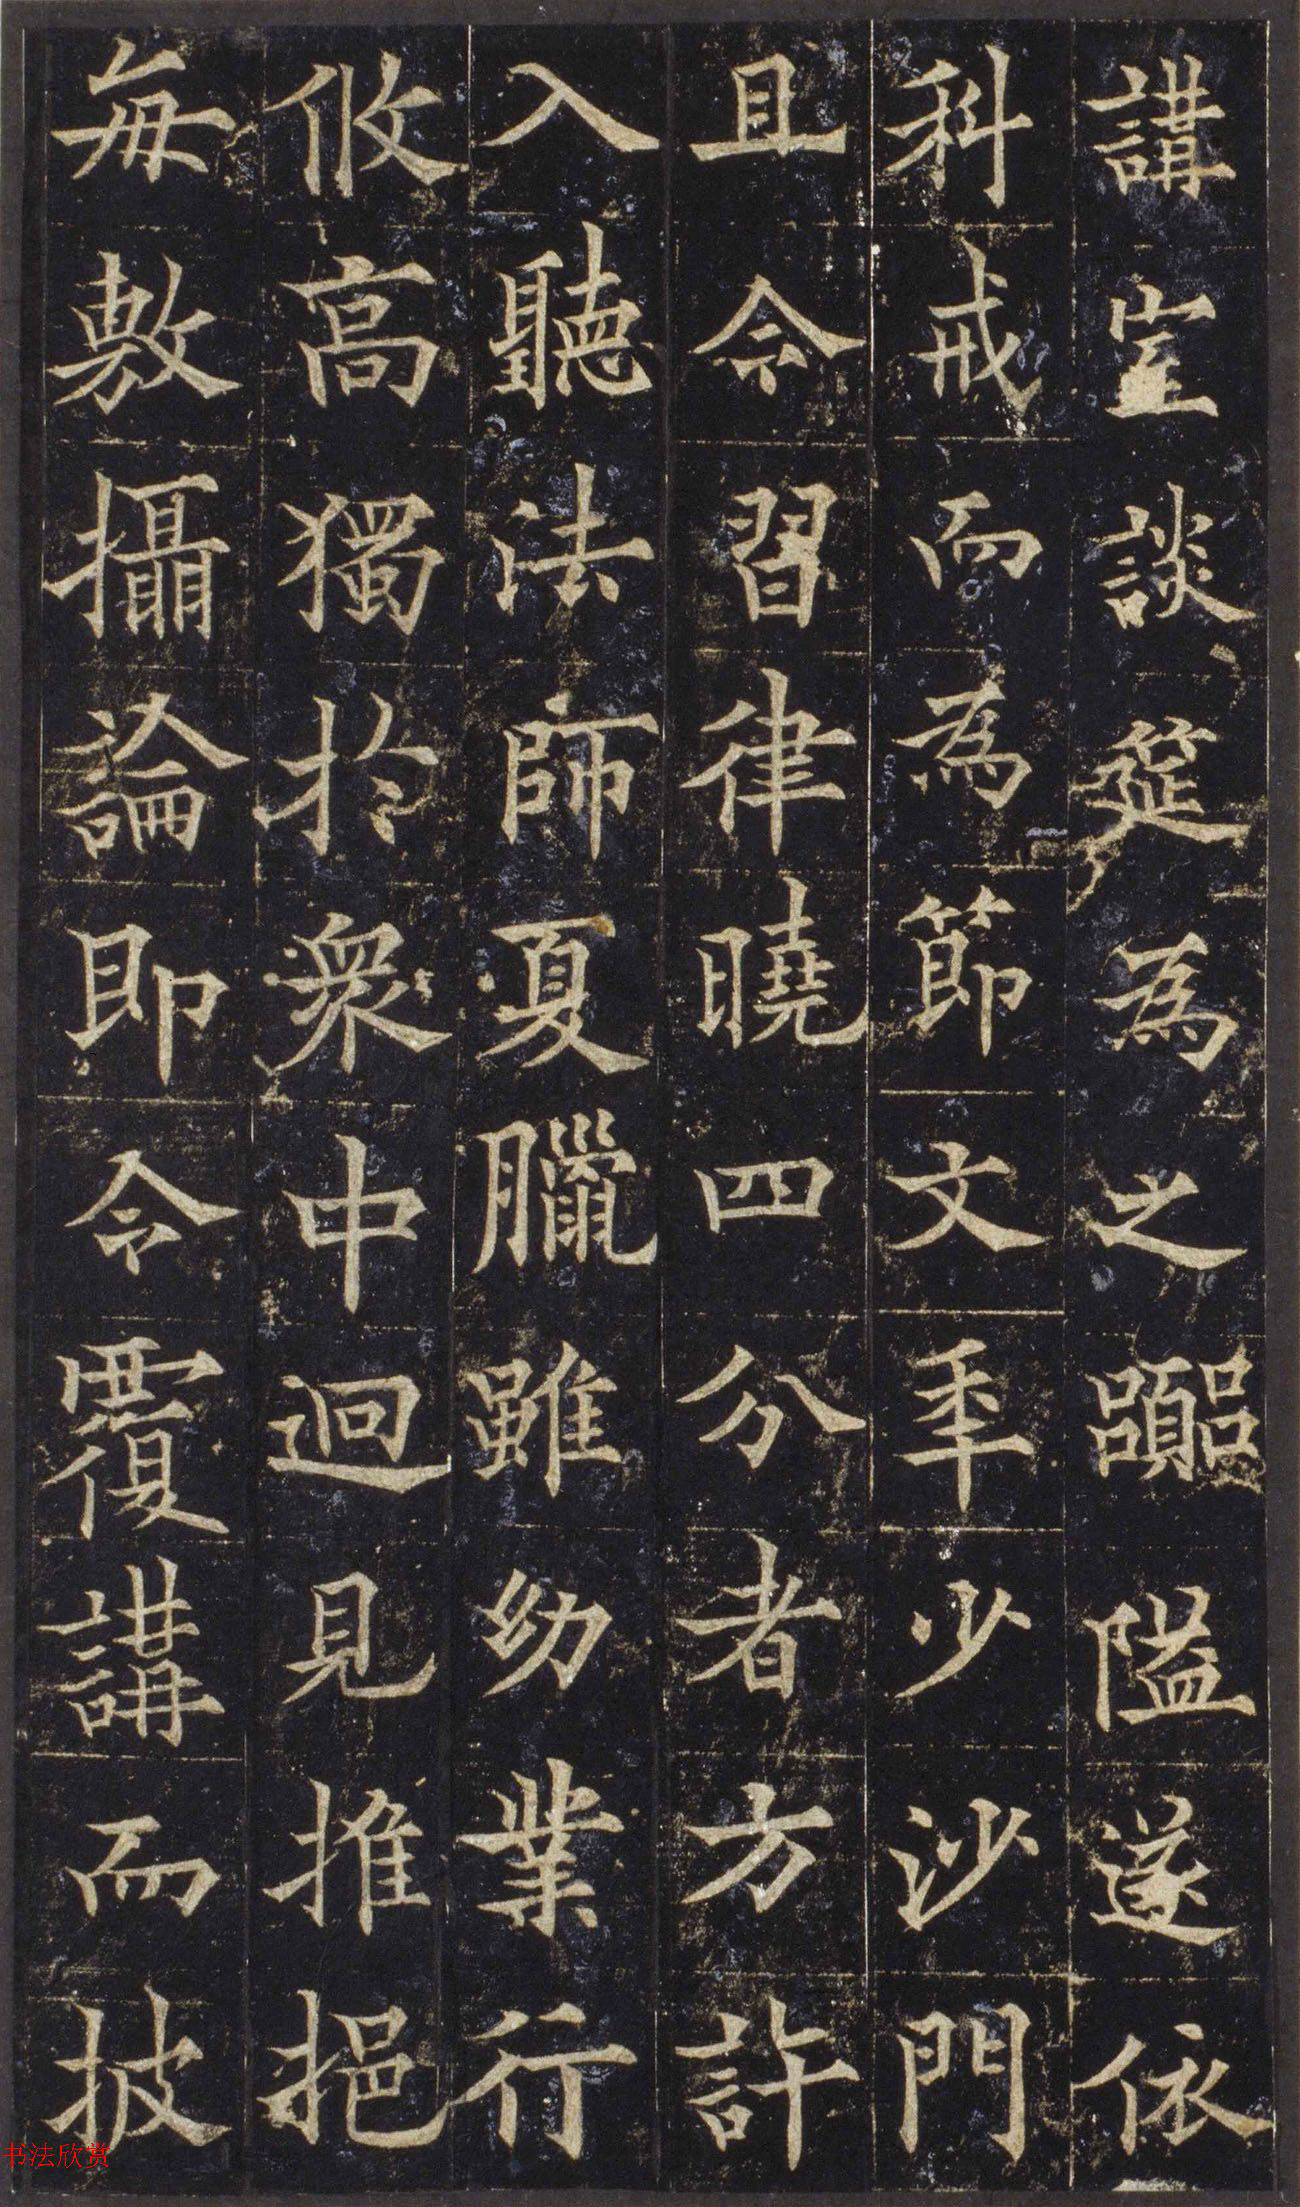 講堂談筵為之嚻隘遂依
科戒而為節文年少沙門
且令習律曉四分者方許
入聽法師夏臘雖幼業行
攸高獨於衆中迥見推挹
每敷攝論即令覆講而披
书法欣赏